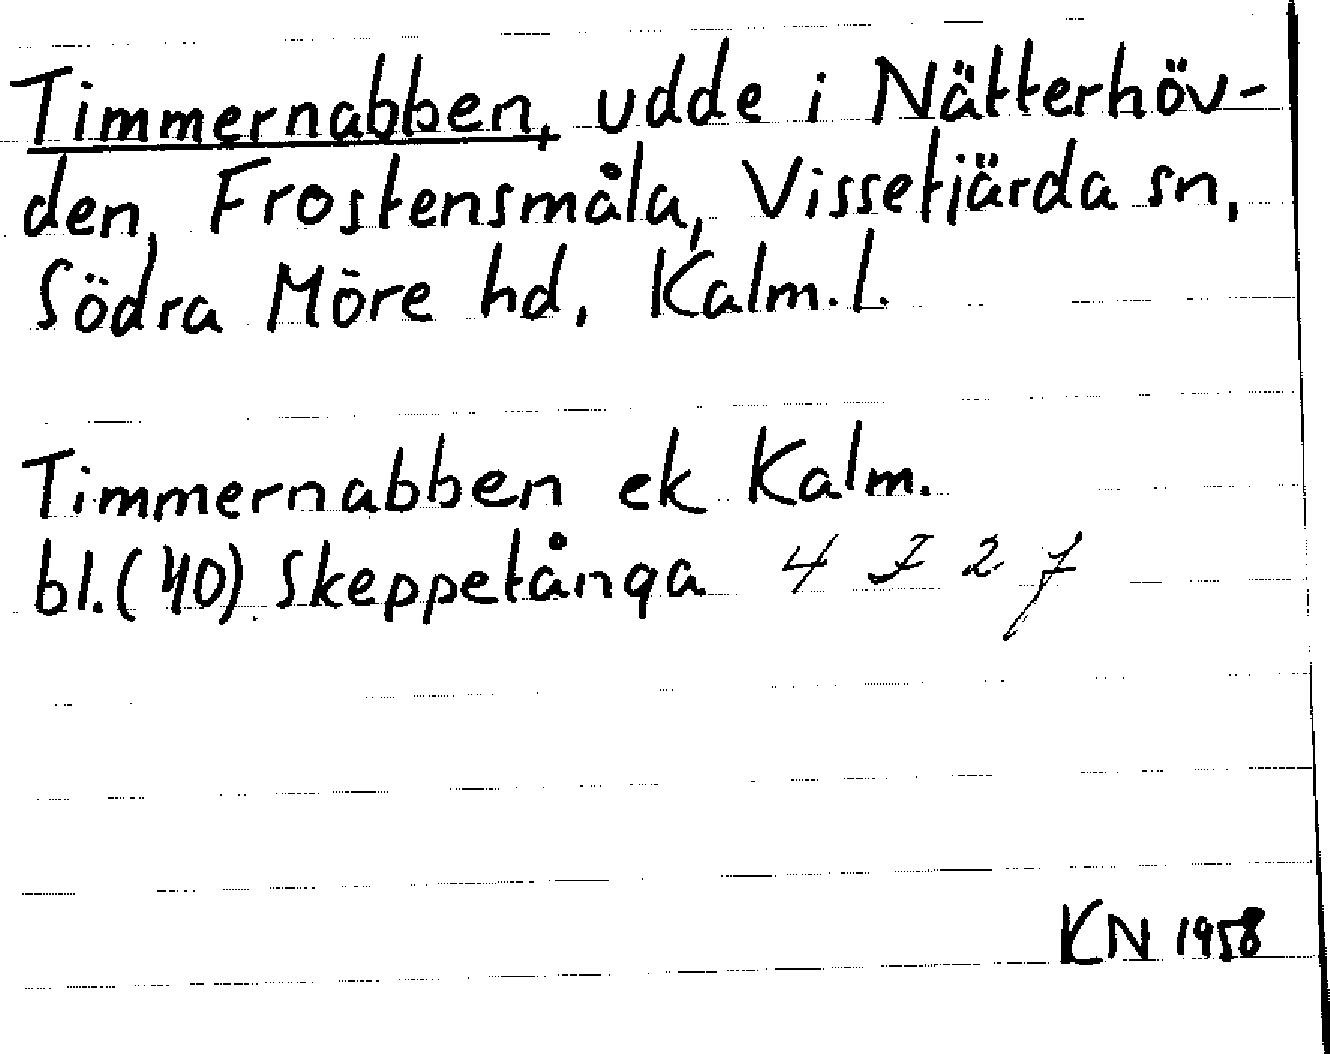 Timmernabben, udde i Nätterhöv-
den, Frostensmåla, Vissefjärda sn,
Södra Möre hd, Kalm. l.
Timmernabben ek Kalm.
bl. (40) Skeppetånga 4 F 2 f
KN 1958